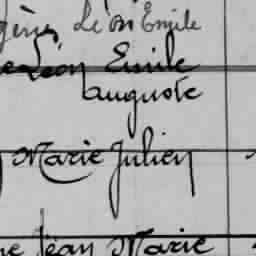 Léon Emile
Léon Emile
auguste
Marie Julien
Jean Marie